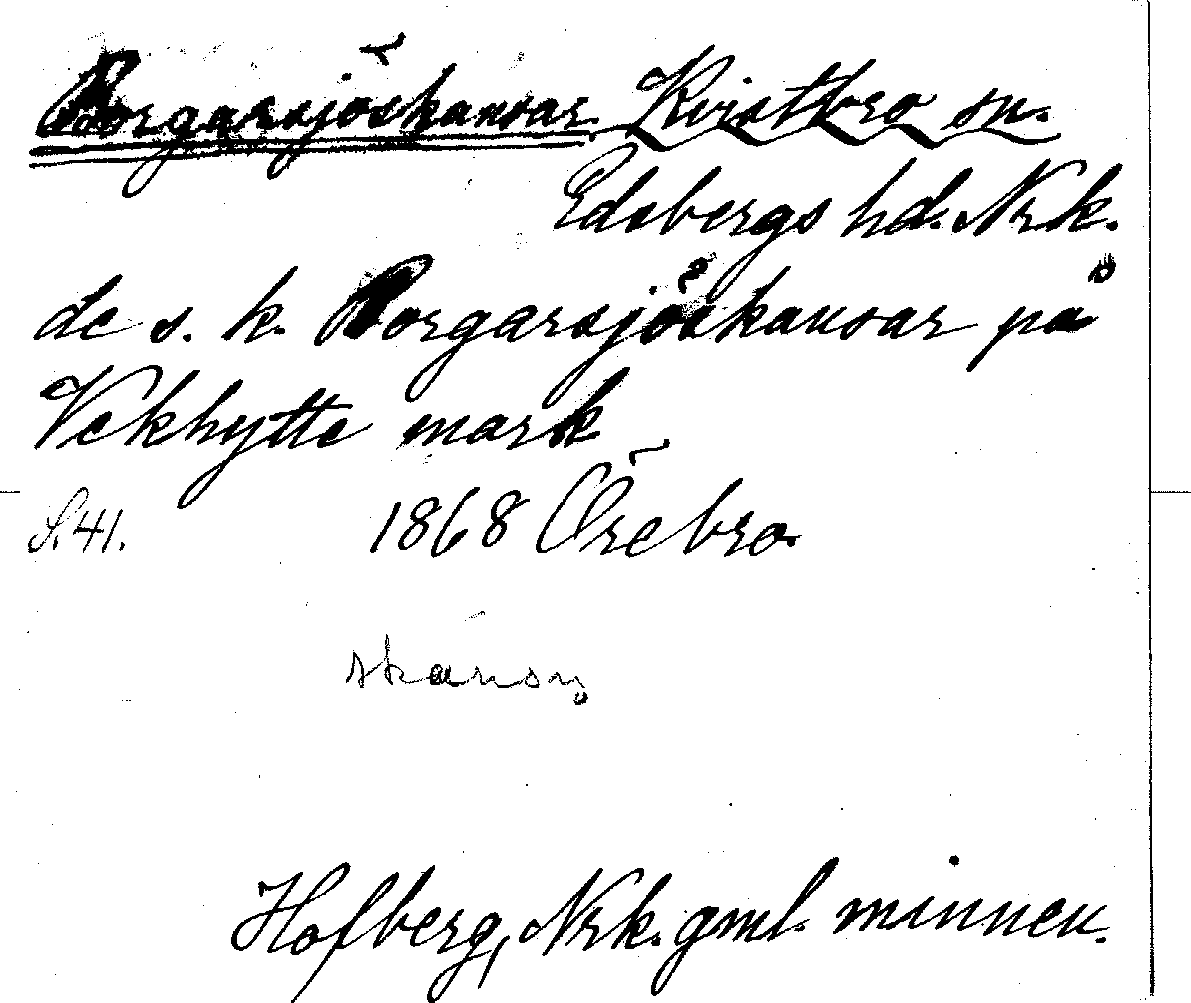 Porgarsjöskansar. Kvistbro sn.
Edsbergs hd. Nrk.
de s. k. Porgarsjöskansar på
Vekhytte mark
S.41. 1868 Örebro.
Hofberg, Nrk. gml. minnen.